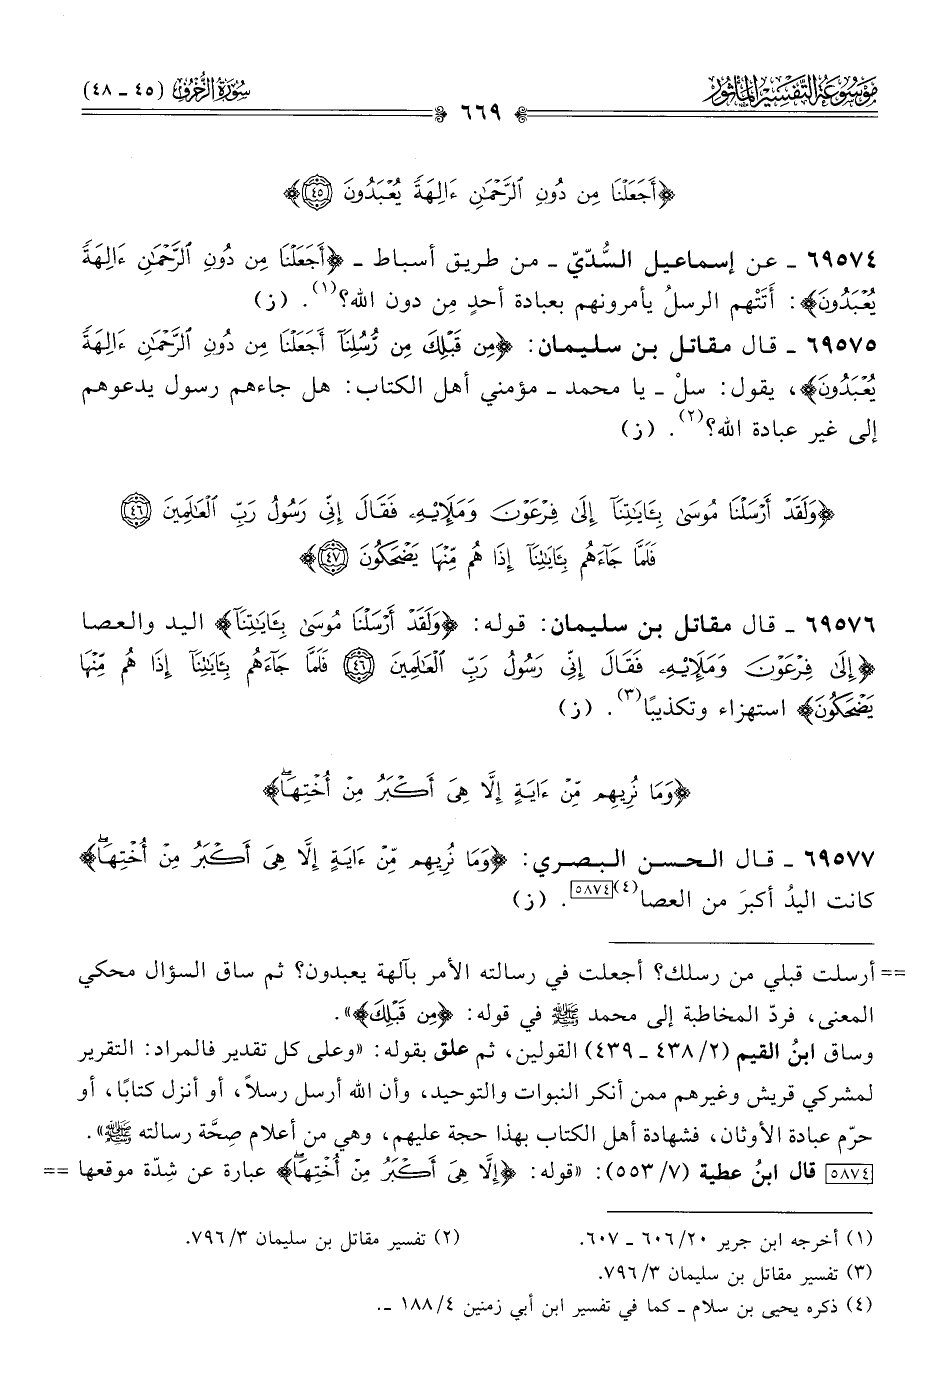 مَوْسُوعَةُ التَّفْسِيرِ المَأْثُور
سُورَةُ الزُّخْرُفِ (٤٥ - ٤٨)
٦٦٩
﴿أَجَعَلْنَا مِن دُونِ ٱلرَّحْمَٰنِ ءَالِهَةً يُعْبَدُونَ ٤٥﴾
٦٩٥٧٤ - عن إسماعيل السُّدّيّ - من طريق أسباط - ﴿أَجَعَلْنَا مِن دُونِ ٱلرَّحْمَٰنِ ءَالِهَةً
يُعْبَدُونَ﴾: أَتَتْهم الرسلُ يأمرونهم بعبادة أحدٍ مِن دون الله؟(١). (ز)
٦٩٥٧٥ - قال مقاتل بن سليمان: ﴿مِن قَبْلِكَ مِن رُّسُلِنَآ أَجَعَلْنَا مِن دُونِ ٱلرَّحْمَٰنِ ءَالِهَةً
يُعْبَدُونَ﴾، يقول: سلْ - يا محمد - مؤمني أهل الكتاب: هل جاءهم رسول يدعوهم
إلى غير عبادة الله؟(٢). (ز)
﴿وَلَقَدْ أَرْسَلْنَا مُوسَىٰ بِـَٔايَٰتِنَآ إِلَىٰ فِرْعَوْنَ وَمَلَإِيْهِۦ فَقَالَ إِنِّى رَسُولُ رَبِّ ٱلْعَٰلَمِينَ ٤٦
فَلَمَّا جَآءَهُم بِـَٔايَٰتِنَآ إِذَا هُم مِّنْهَا يَضْحَكُونَ ٤٧﴾
٦٩٥٧٦ - قال مقاتل بن سليمان: قوله: ﴿وَلَقَدْ أَرْسَلْنَا مُوسَىٰ بِـَٔايَٰتِنَآ﴾ اليد والعصا
﴿إِلَىٰ فِرْعَوْنَ وَمَلَإِيْهِۦ فَقَالَ إِنِّى رَسُولُ رَبِّ ٱلْعَٰلَمِينَ ٤٦ فَلَمَّا جَآءَهُم بِـَٔايَٰتِنَآ إِذَا هُم مِّنْهَا
يَضْحَكُونَ﴾ استهزاء وتكذيبًا(٣). (ز)
﴿وَمَا نُرِيهِم مِّنْ ءَايَةٍ إِلَّا هِىَ أَكْبَرُ مِنْ أُخْتِهَاۖ﴾
٦٩٥٧٧ - قال الحسن البصري: ﴿وَمَا نُرِيهِم مِّنْ ءَايَةٍ إِلَّا هِىَ أَكْبَرُ مِنْ أُخْتِهَاۖ﴾
كانت اليدُ أكبرَ من العصا(٤)[٥٨٧٤]. (ز)
== أرسلت قبلي من رسلك؟ أجعلت في رسالته الأمر بآلهة يعبدون؟ ثم ساق السؤال محكي
المعنى، فردّ المخاطبة إلى محمد ﷺ في قوله: ﴿مِن قَبْلِكَ﴾».
وساق ابنُ القيم (٢/ ٤٣٨ - ٤٣٩) القولين، ثم علق بقوله: «وعلى كل تقدير فالمراد: التقرير
لمشركي قريش وغيرهم ممن أنكر النبوات والتوحيد، وأن الله أرسل رسلاً، أو أنزل كتابًا، أو
حرّم عبادة الأوثان، فشهادة أهل الكتاب بهذا حجة عليهم، وهي من أعلام صِحَّة رسالته ﷺ».
[٥٨٧٤] قال ابنُ عطية (٧/ ٥٥٣): «قوله: ﴿إِلَّا هِىَ أَكْبَرُ مِنْ أُخْتِهَاۖ﴾ عبارة عن شِدّة موقعها ==
(١) أخرجه ابن جرير ٢٠/ ٦٠٦ - ٦٠٧.
(٢) تفسير مقاتل بن سليمان ٣/ ٧٩٦.
(٣) تفسير مقاتل بن سليمان ٣/ ٧٩٦.
(٤) ذكره يحيى بن سلام - كما في تفسير ابن أبي زمنين ٤/ ١٨٨ -.